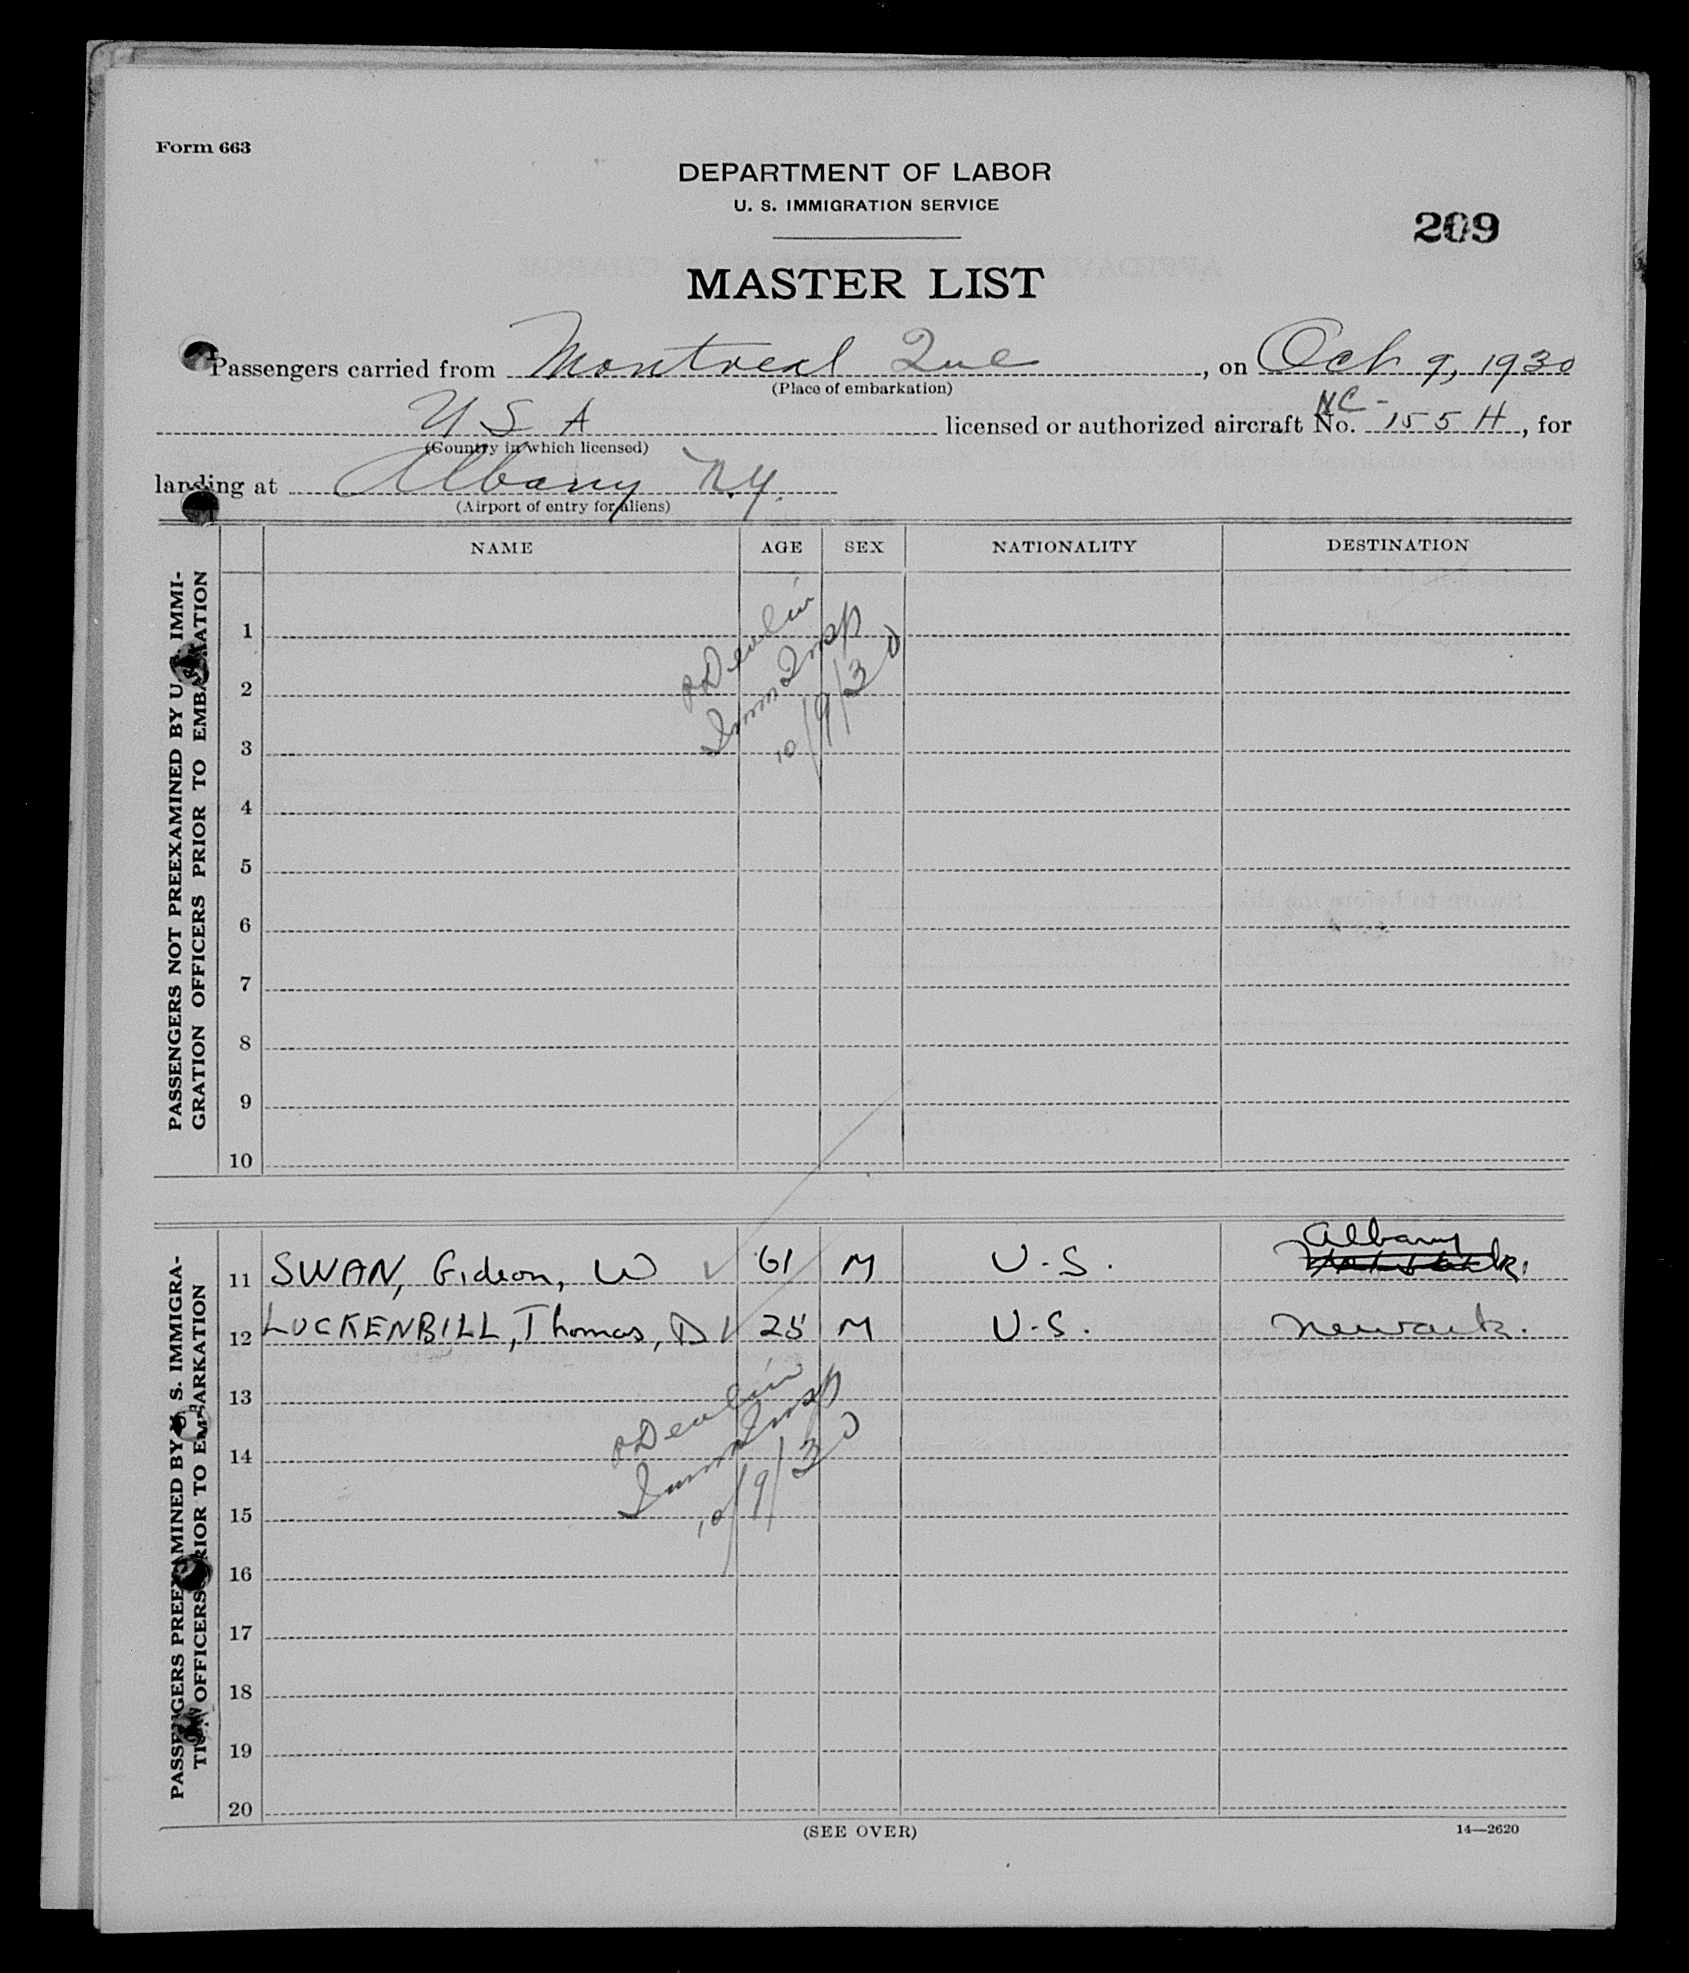 Form 663
DEPARTMENT OF LABOR
U. S. IMMIGRATION SERVICE
209
MASTER LIST
Passengers carried from Montreal Que, on Oct 9, 1930
(Place of embarkation)
NC-
U S A licensed or authorized aircraft No. 155H, for
(Country in which licensed)
landing at Albany N.Y.
(Airport of entry for aliens)
NAME AGE SEX NATIONALITY DESTINATION
PASSENGERS NOT PREEXAMINED BY U. S. IMMI-
GRATION OFFICERS PRIOR TO EMBARKATION
1
2
3
Devlin
Imm Insp
10/9/30
4
5
6
7
8
9
10
PASSENGERS PREEXAMINED BY U. S. IMMIGRA-
TION OFFICERS PRIOR TO EMBARKATION
Albany
11 SWAN, Gideon, W ✓ 61 M U.S. Newark.
12 LUCKENBILL, Thomas, D ✓ 25 M U.S. Newark.
13
14
15
Devlin
Imm Insp
10/9/30
16
17
18
19
20
(SEE OVER)
14—2620